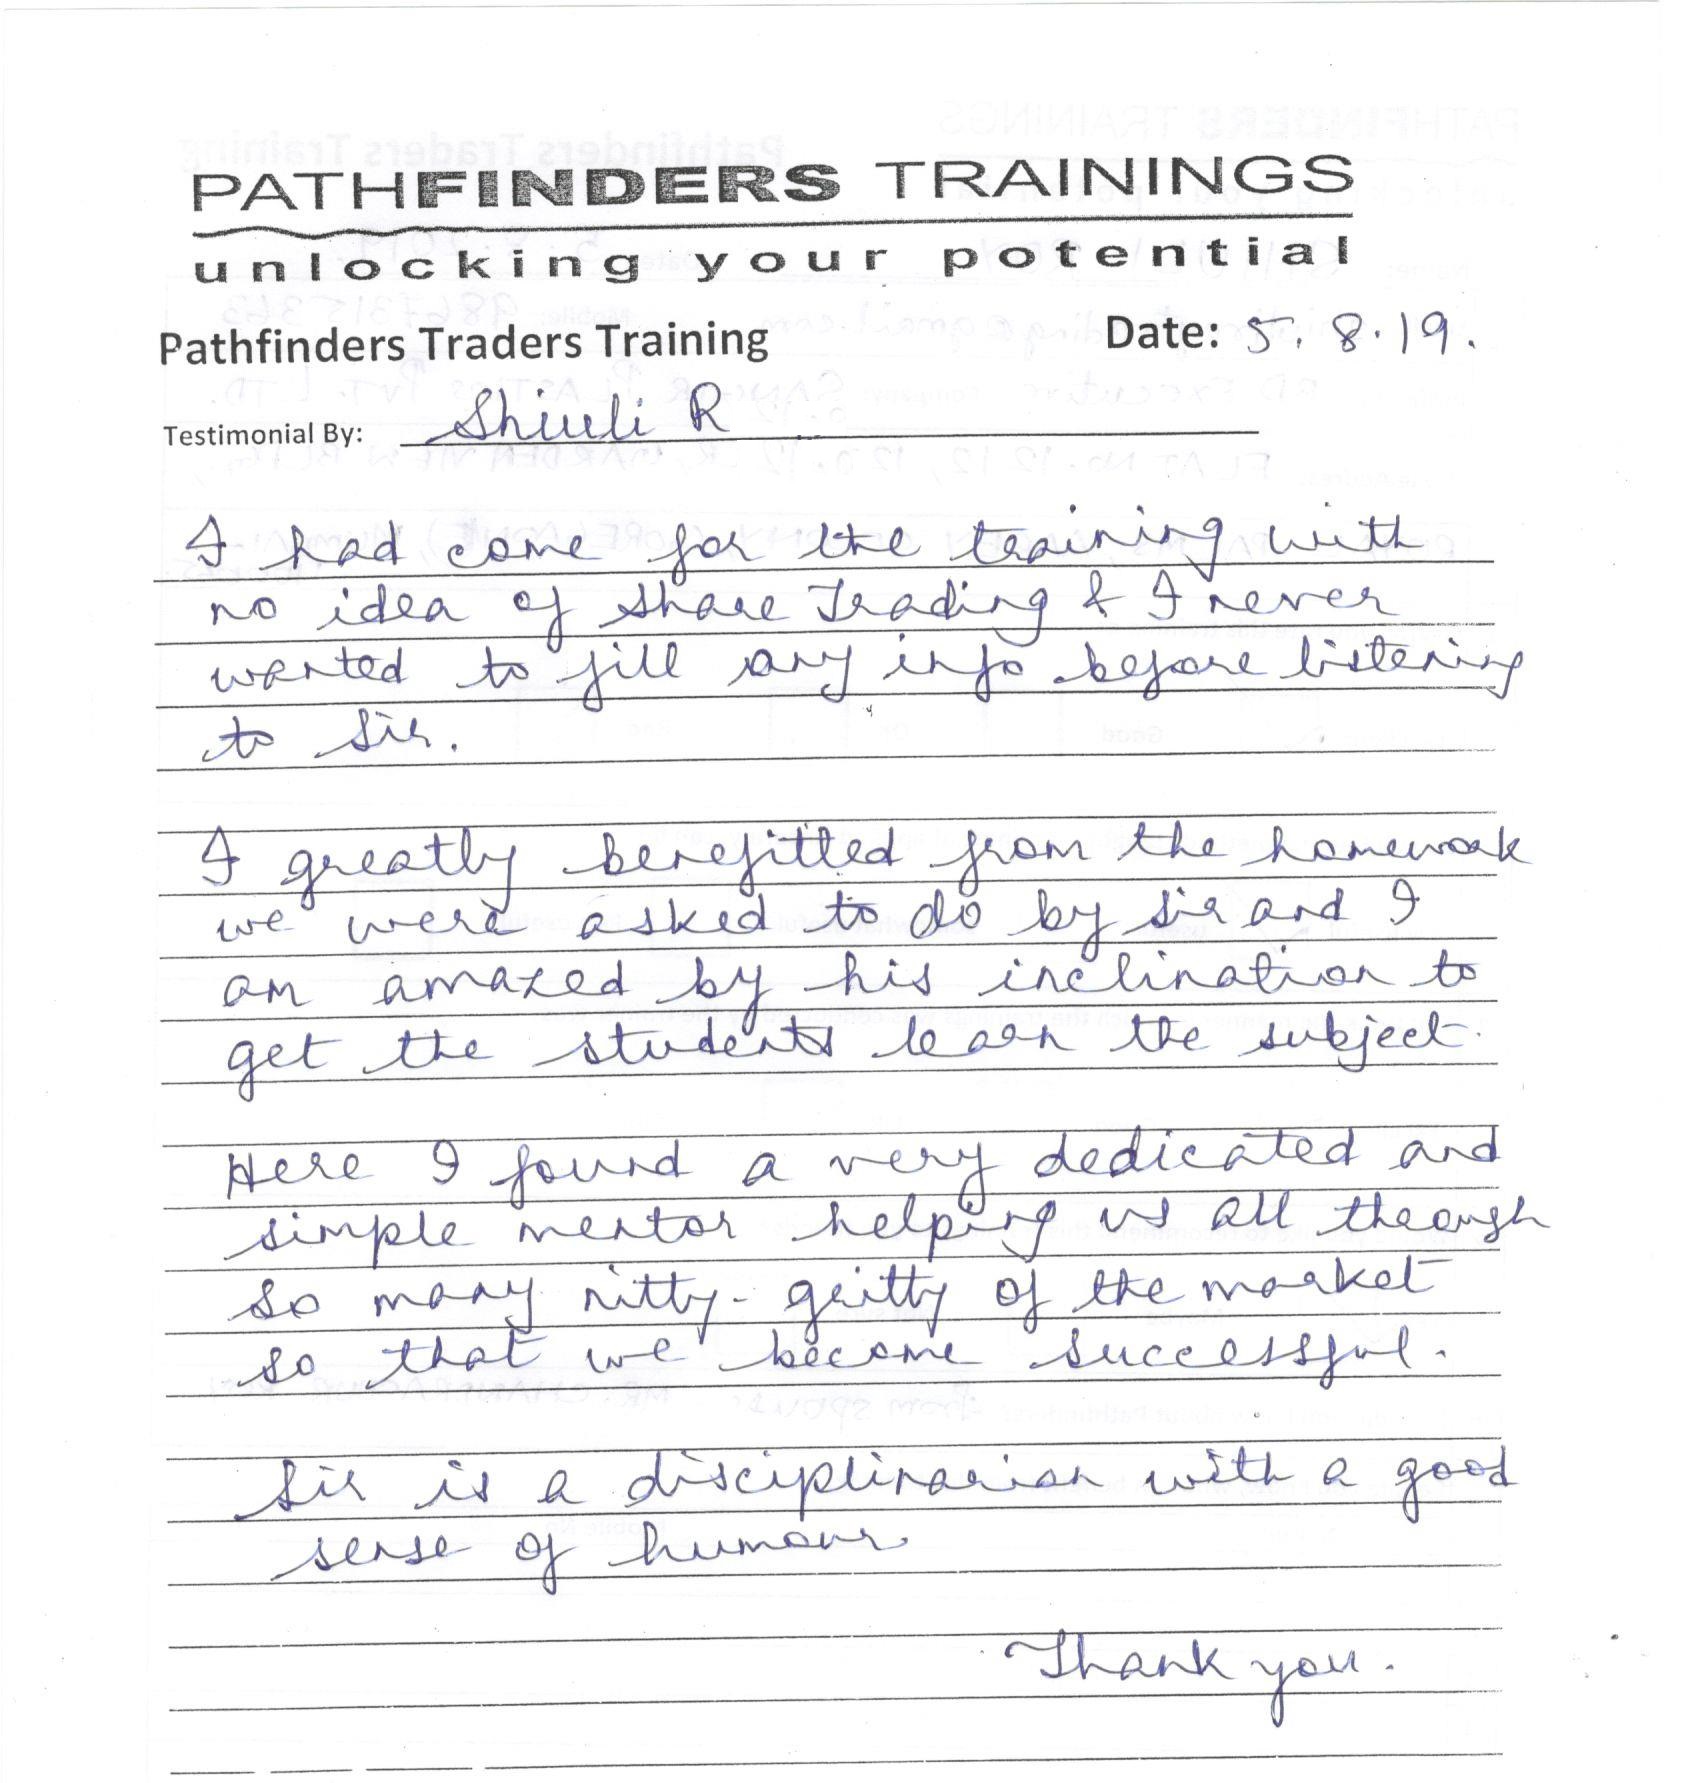 PATHFINDERS TRAININGS
unlocking your potential
Pathfinders Traders Training Date: 5.8.19.
Testimonial By: Shiuli R
I had come for the training with
no idea of share Trading & I never
wanted to fill any info before listening
to Sir.
I greatly benefitted from the homework
we were asked to do by sir and I
am amazed by his inclination to
get the students learn the subject.
Here I found a very dedicated and
simple mentor helping us all through
so many nitty-gritty of the market
so that we become successful.
Sir is a disciplinarian with a good
sense of humour.
Thank you.